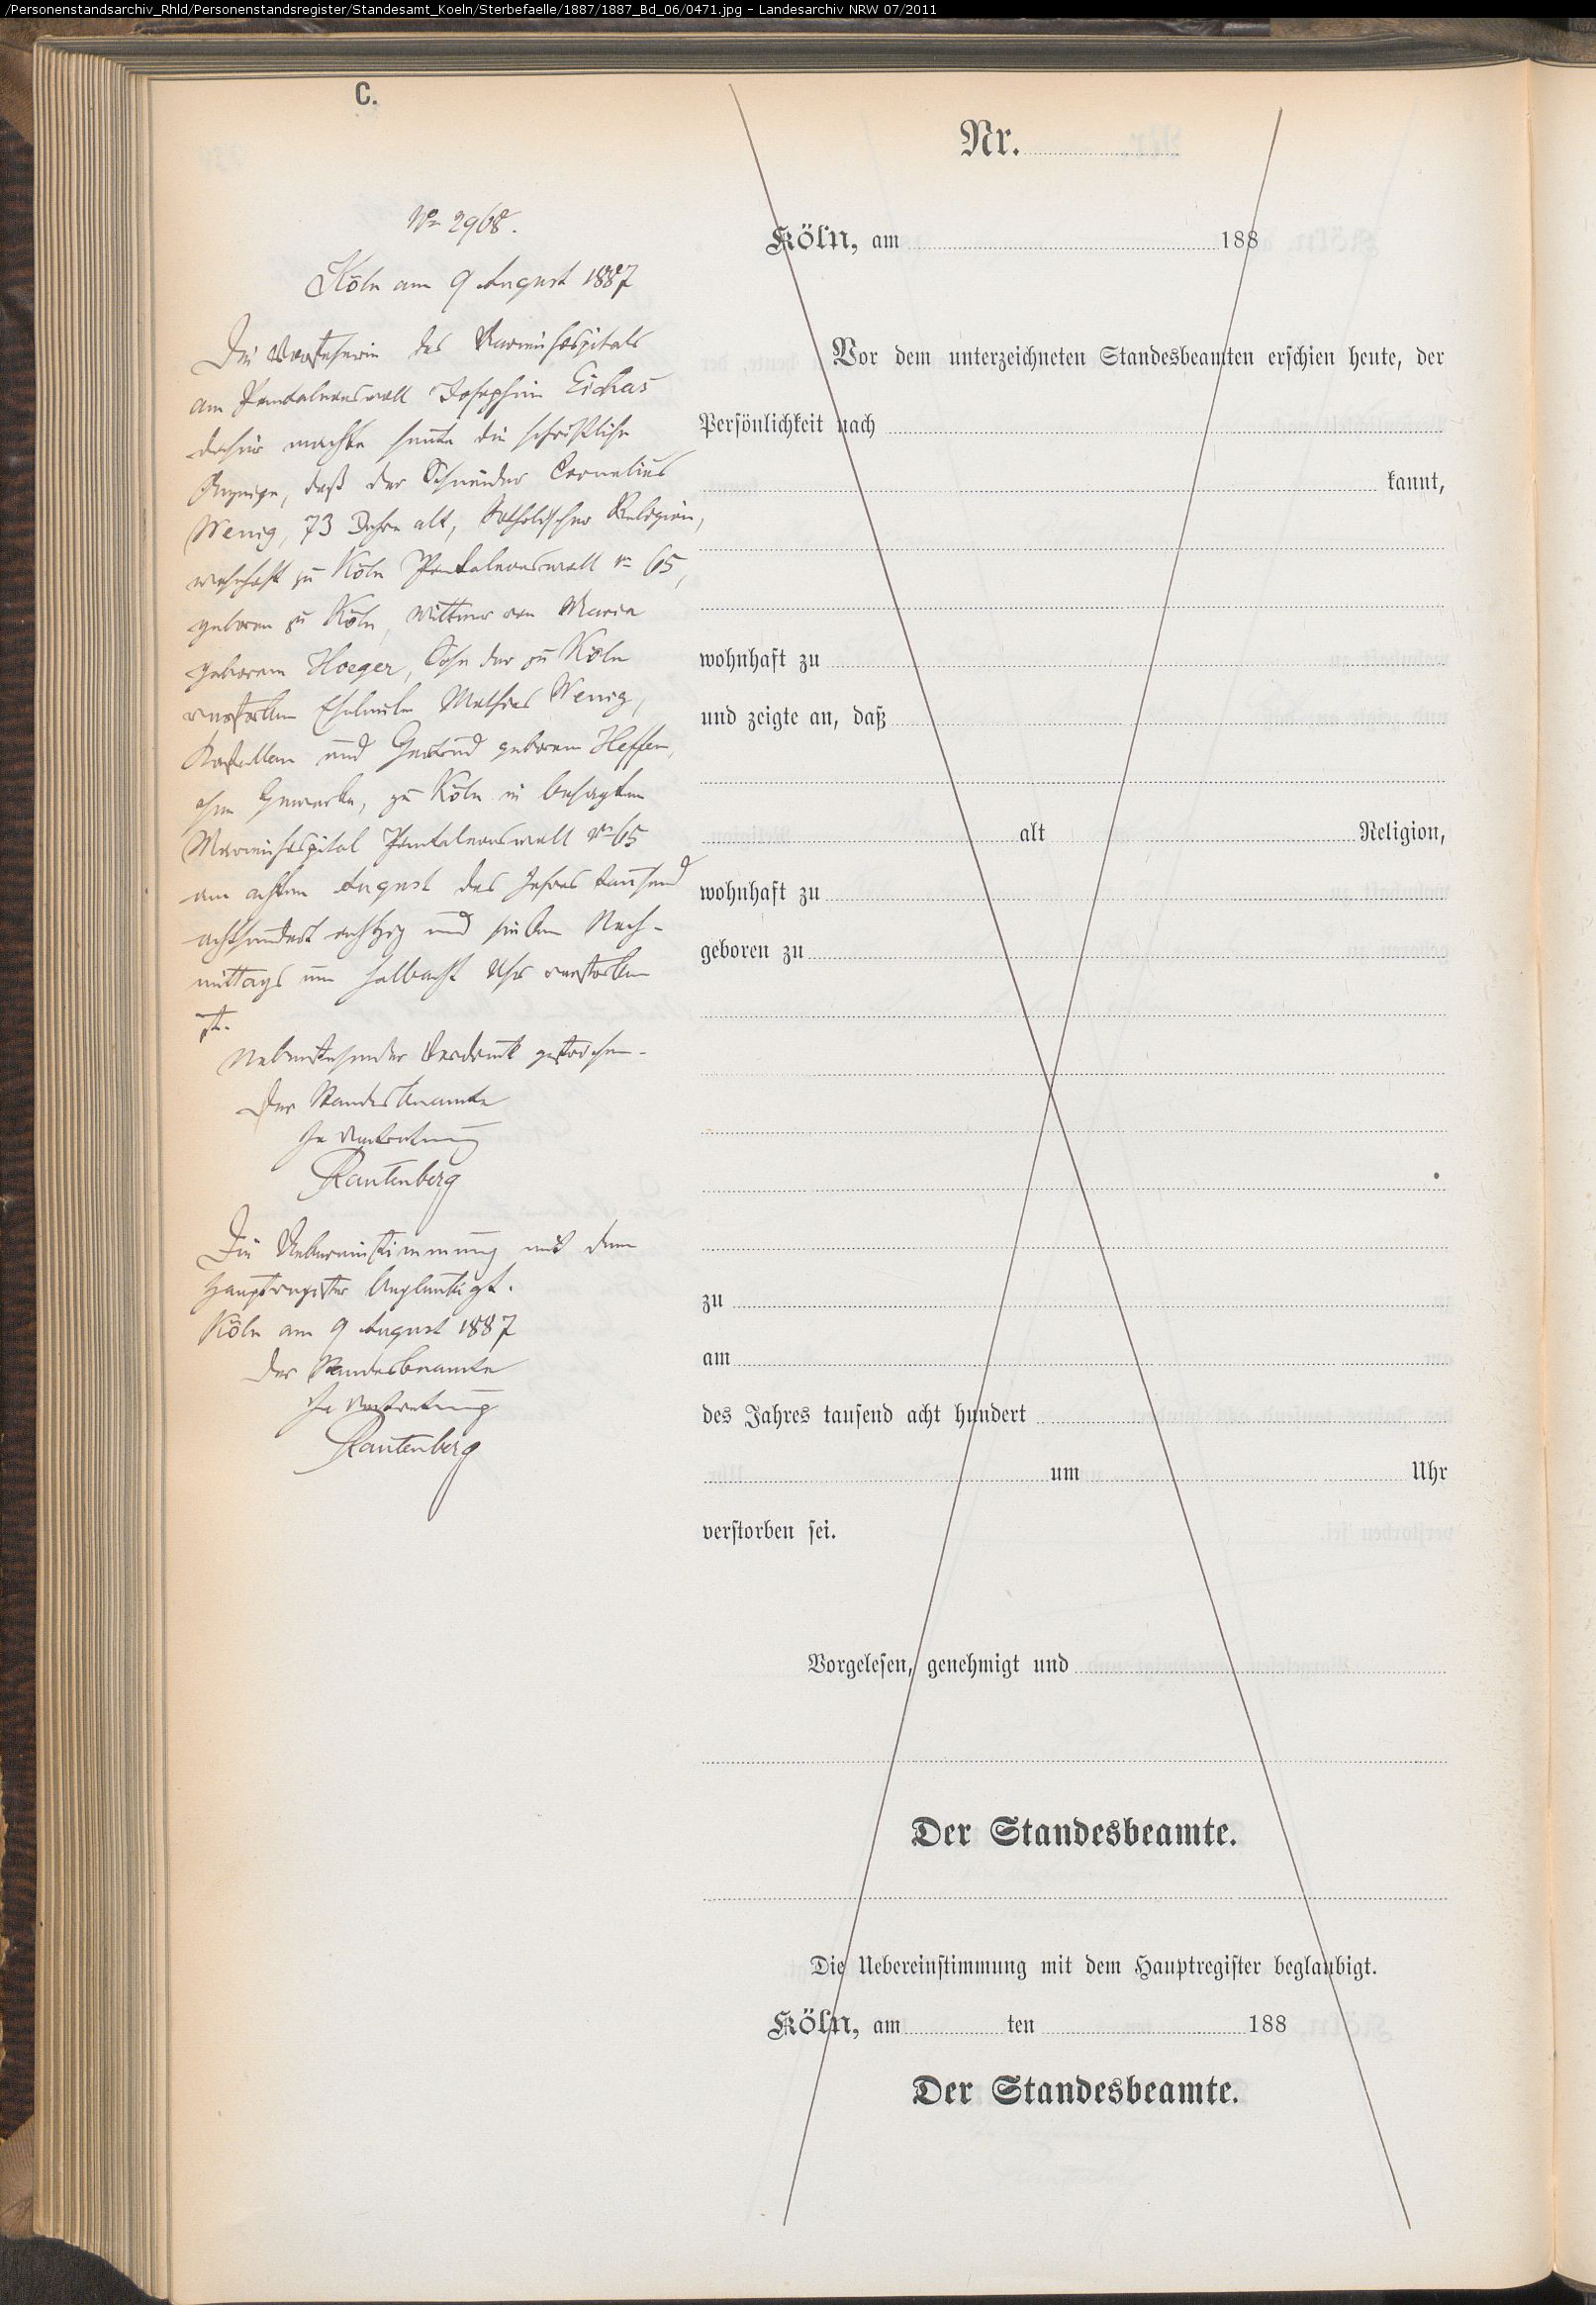 /Personenstandsarchiv_Rhld/Personenstandsregister/Standesamt_Koeln/Sterbefaelle/1887/1887_Bd_06/0471.jpg - Landesarchiv NRW 07/2011
C.
No 2968.
Köln am 9 August 1887
Die Vorsteherin des Marienhospitals
am Pantaleonswall Josephine Eichas
dahier machte heute die schriftliche
Anzeige, daß der Schneider Cornelius
Wenig, 73 Jahre alt, katholischer Religion,
wohnhaft zu Köln Pantaleonswall no 65,
geboren zu Köln, Wittwer von Maria
geborenen Hoeger, Sohn der zu Köln
verstorbenen Eheleute Mathias Wenig,
Kastellan und Gertrud geborenen Heffen,
ohne Gewerbe, zu Köln in besagtem
Marienhospital Pantaleonswall no 65
am achten August des Jahres tausend
achthundert achtzig und sieben Nach-
mittags um halbacht Uhr verstorben
ist.
Nebenstehender Vordruck gestrichen.
Der Standesbeamte
In Vertretung
Rautenberg
Die Uebereinstimmung mit dem
Hauptregister beglaubigt.
Köln am 9 August 1887
Der Standesbeamte
In Vertretung
Rautenberg
Nr.
Köln, am 188
Vor dem unterzeichneten Standesbeamten erschien heute, der
Persönlichkeit nach
kannt,
wohnhaft zu
und zeigte an, daß
alt Religion,
wohnhaft zu
geboren zu
zu
am
des Jahres tausend acht hundert
um Uhr
verstorben sei.
Vorgelesen, genehmigt und
Der Standesbeamte.
Die Uebereinstimmung mit dem Hauptregister beglaubigt.
Köln, am ten 188
Der Standesbeamte.